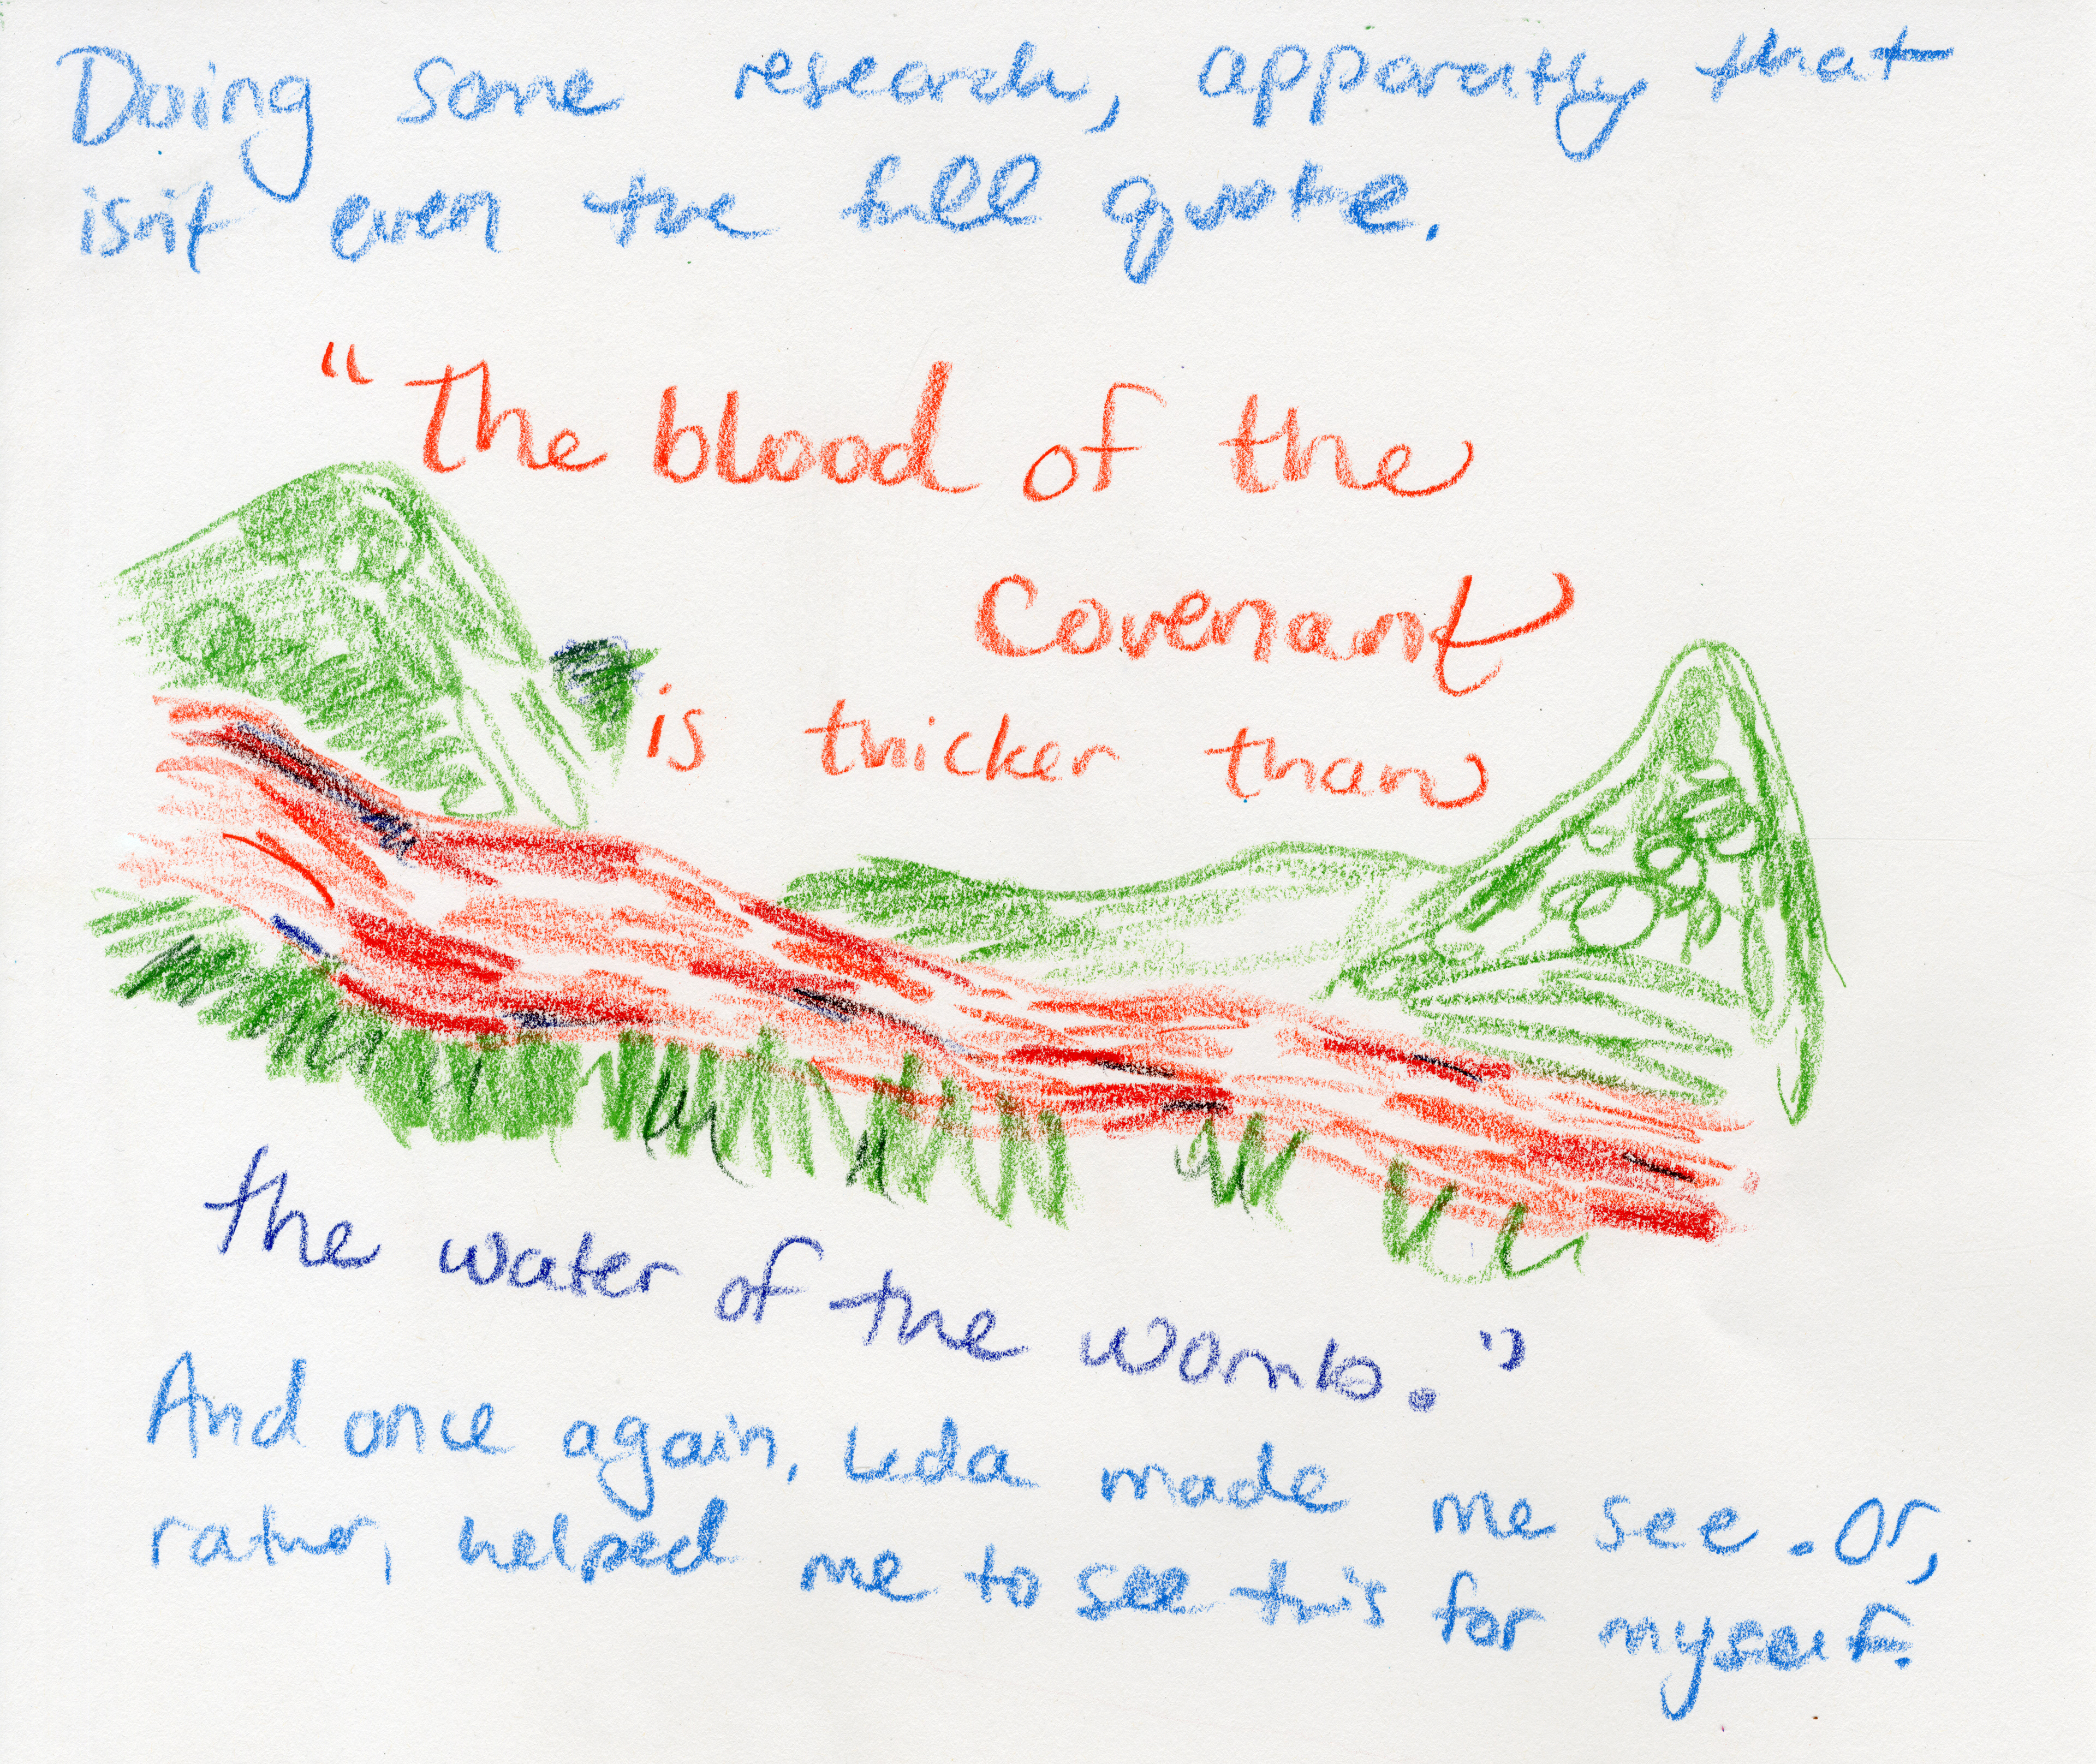 Doing some research, apparently that
isn't even the full quote.
"The blood of the
Covenant
is thicker than
the water of the womb."
And once again, Leda made me see. Or,
rather, helped me to see this for myself.